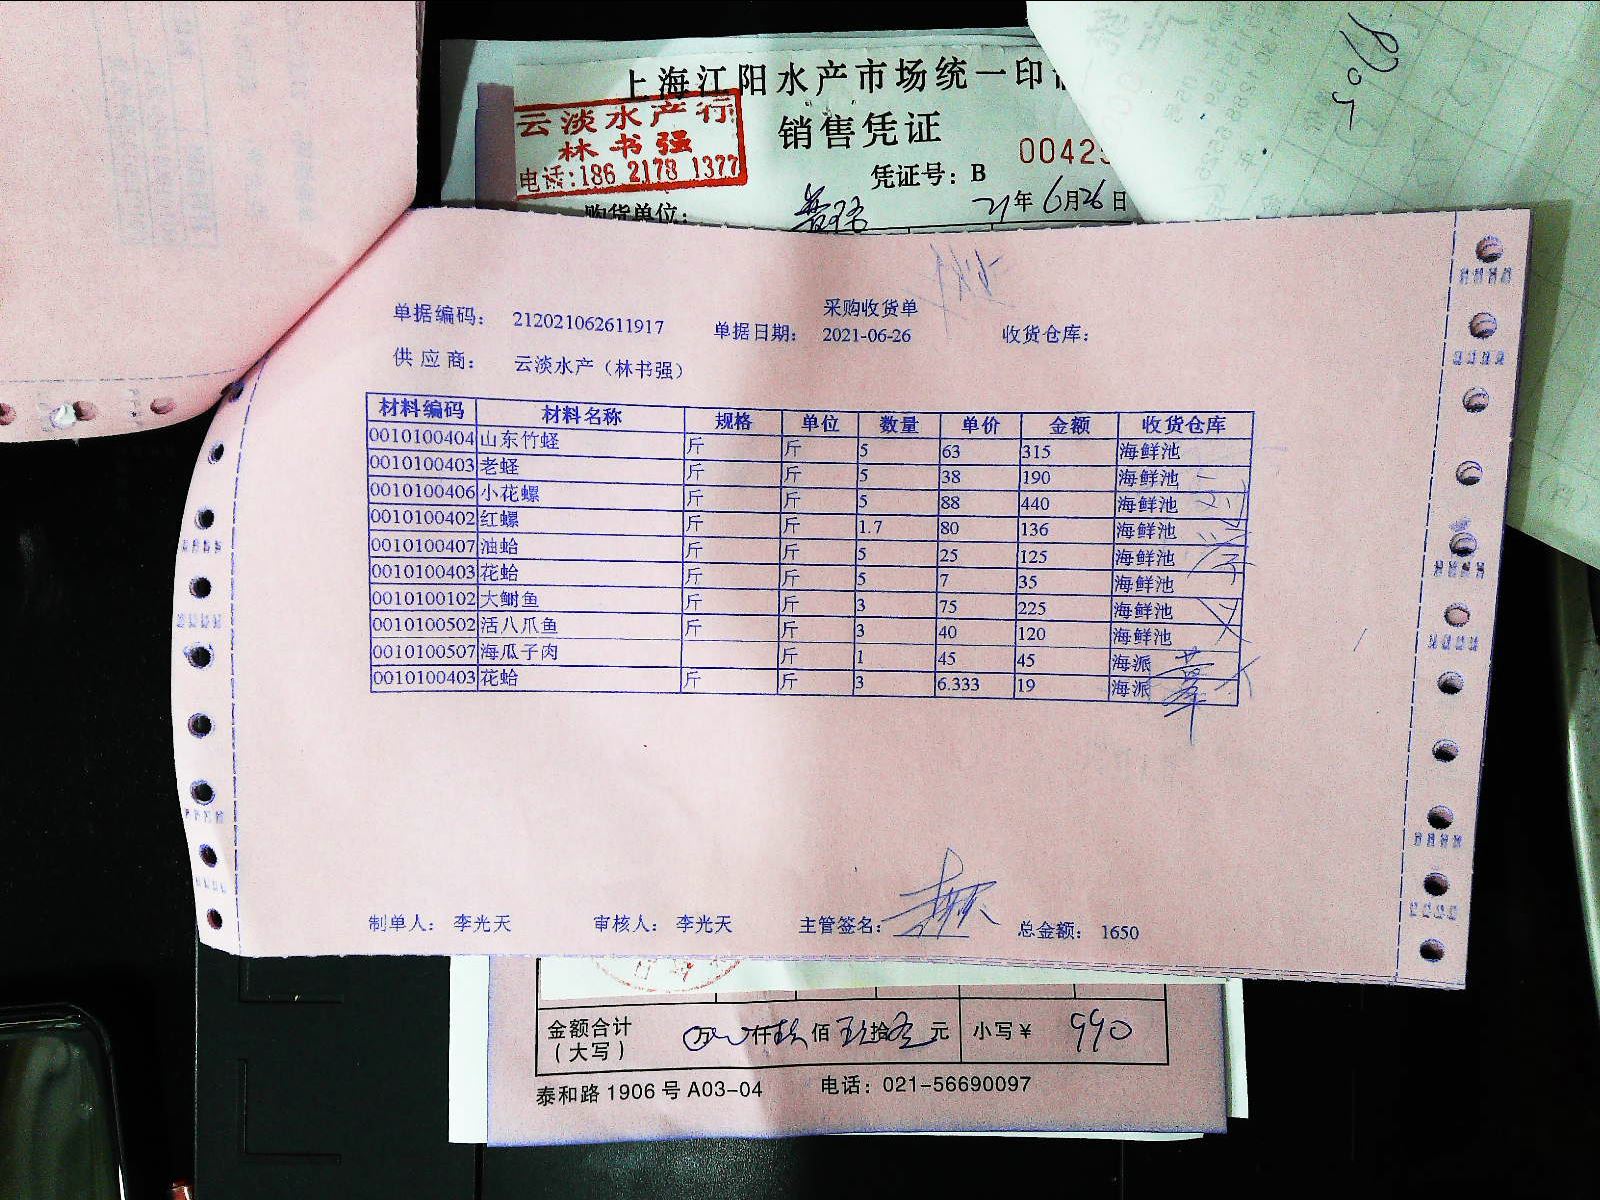 上海江阳水产市场统一印
云淡水产行
林书强
电话:186 2178 1377
销售凭证
凭证号：B 0042
购货单位：
21年6月26日
采购收货单
单据编码： 212021062611917 单据日期： 2021-06-26 收货仓库：
供应商： 云淡水产（林书强）
材料编码 材料名称 规格 单位 数量 单价 金额 收货仓库
0010100404 山东竹蛏 斤 斤 5 63 315 海鲜池
0010100403 老蛏 斤 斤 5 38 190 海鲜池
0010100406 小花螺 斤 斤 5 88 440 海鲜池
0010100402 红螺 斤 斤 1.7 80 136 海鲜池
0010100407 油蛤 斤 斤 5 25 125 海鲜池
0010100403 花蛤 斤 斤 5 7 35 海鲜池
0010100102 大鲋鱼 斤 斤 3 75 225 海鲜池
0010100502 活八爪鱼 斤 斤 3 40 120 海鲜池
0010100507 海瓜子肉 斤 1 45 45 海派
0010100403 花蛤 斤 斤 3 6.333 19 海派
制单人： 李光天 审核人： 李光天 主管签名： 总金额： 1650
金额合计（大写） 万 仟 佰 拾 元 小写￥ 990
泰和路1906号A03-04 电话：021-56690097